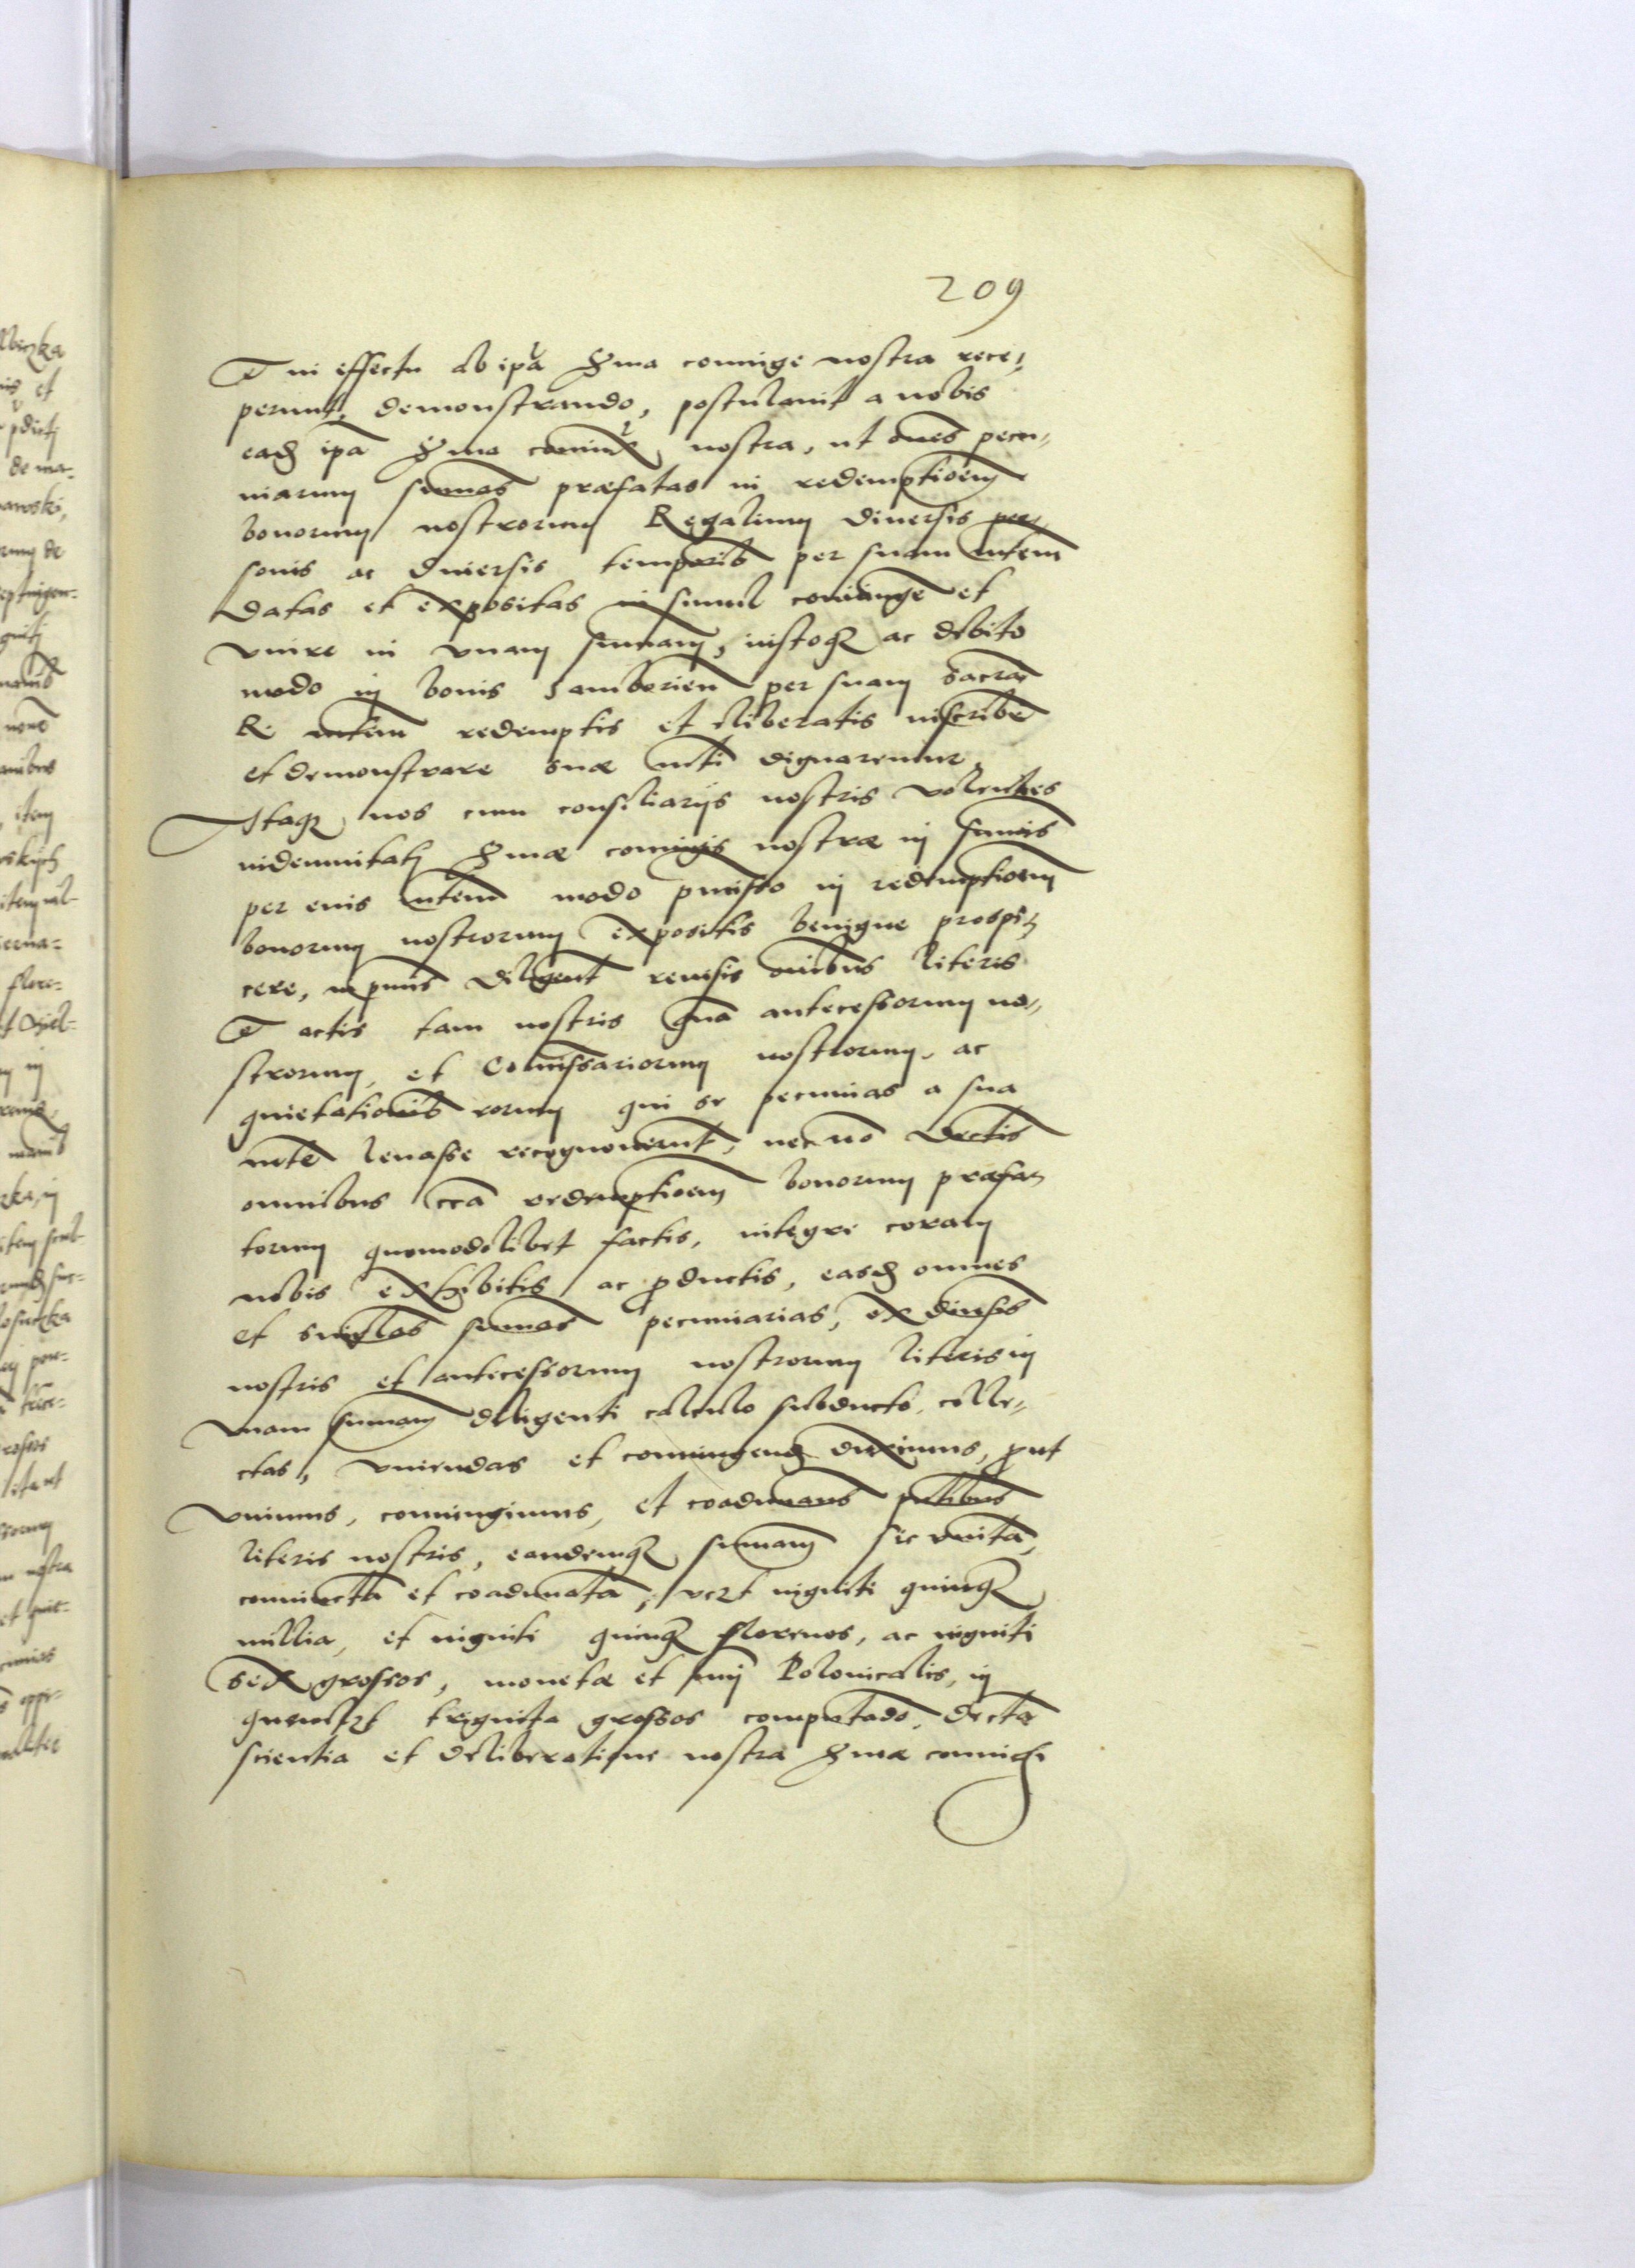 209
Et in effectu ab ipa Sma coniuge nostra rece-
perunt, demonstrando, postulauit a nobis
eadem ipa Sma coniux nostra, ut omnes pecu-
niarum summas præfatas in redemptionem
bonorum nostrorum Regalium diuersis per-
sonis ac diuersis temporib per suam mtem
datas et expositas in simul coniungere et
vnire in vnam summam, iustoq ac debito
modo in bonis Samborien per suam Sacram
R mtem redemptis et liberatis inscribere
et demonstrare suæ mti dignaremur.
Itaq nos cum consiliarijs nostris volentes
indemnitati Smæ coniugis nostræ in summis
per eius mtem modo pmisso in redemptionem
bonorum nostrorum expositis benigne prospi-
cere, inprimis diligent reuisis omibus literis
Et actis tam nostris qua antecessorum no-
strorum, et Comissariorum nostrorum, ac
quietationib eorum qui se pecunias a sua
mte leuasse recognouerunt, nec no actis
omnibus cca redemptionem bonorum præfa-
torum quomodolibet factis, integre coram
nobis exhibitis ac productis, easdem omnes
et singulas summas pecuniarias, ex diuersis
nostris et antecessorum nostrorum literis in
vnam summam diligenti calculo subducto, colle-
ctas, vniendas et coniungendas duximus, prout
vnimus, coniungimus, et coadunamus pntibus
literis nostris, eandemq summam sic vnita,
coniuncta et coadunata, vczt viginti quinq
millia, et viginti quinq florenos, ac viginti
sex grossos, monetæ et nri Polonicalis, in
quemlzt triginta grossos computado, de certa
scientia et deliberatione nostra Smæ coniugi